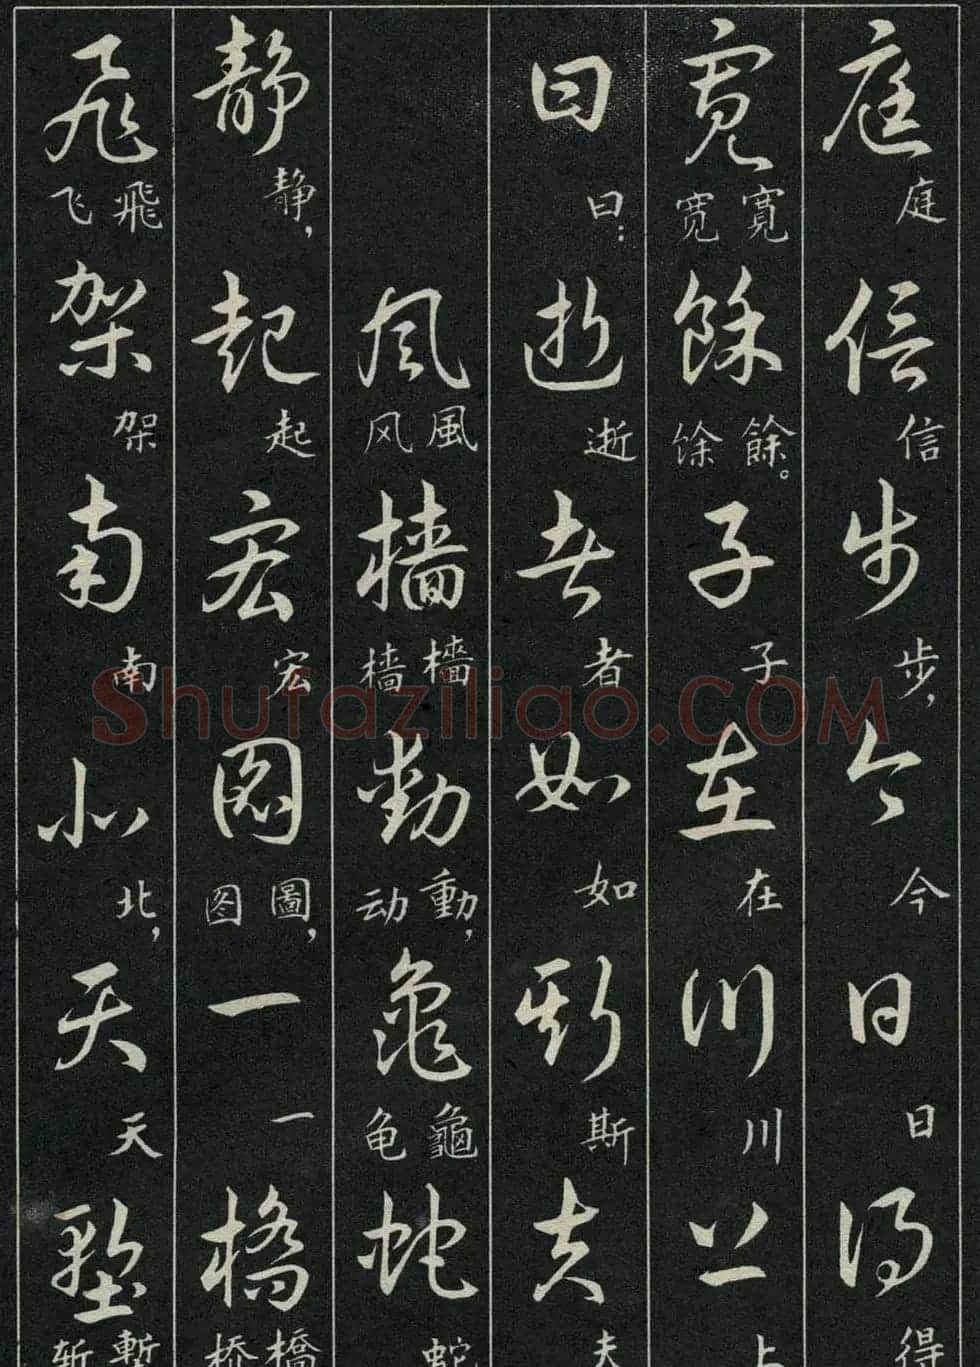 庭 庭 信 信 步 步, 今 今 日 日 得 得
寬 寬 宽 餘 餘。 馀 子 子 在 在 川 川 上 上
曰 曰: 逝 逝 者 者 如 如 斯 斯 夫 夫
風 風 风 樯 檣 樯 動 動, 动 龜 龜 龟 蛇 蛇
静 静, 起 起 宏 宏 圖 圖, 图 一 一 橋 橋 桥
飛 飛 飞 架 架 南 南 北 北, 天 天 塹 塹 堑
Shufaziliao.COM